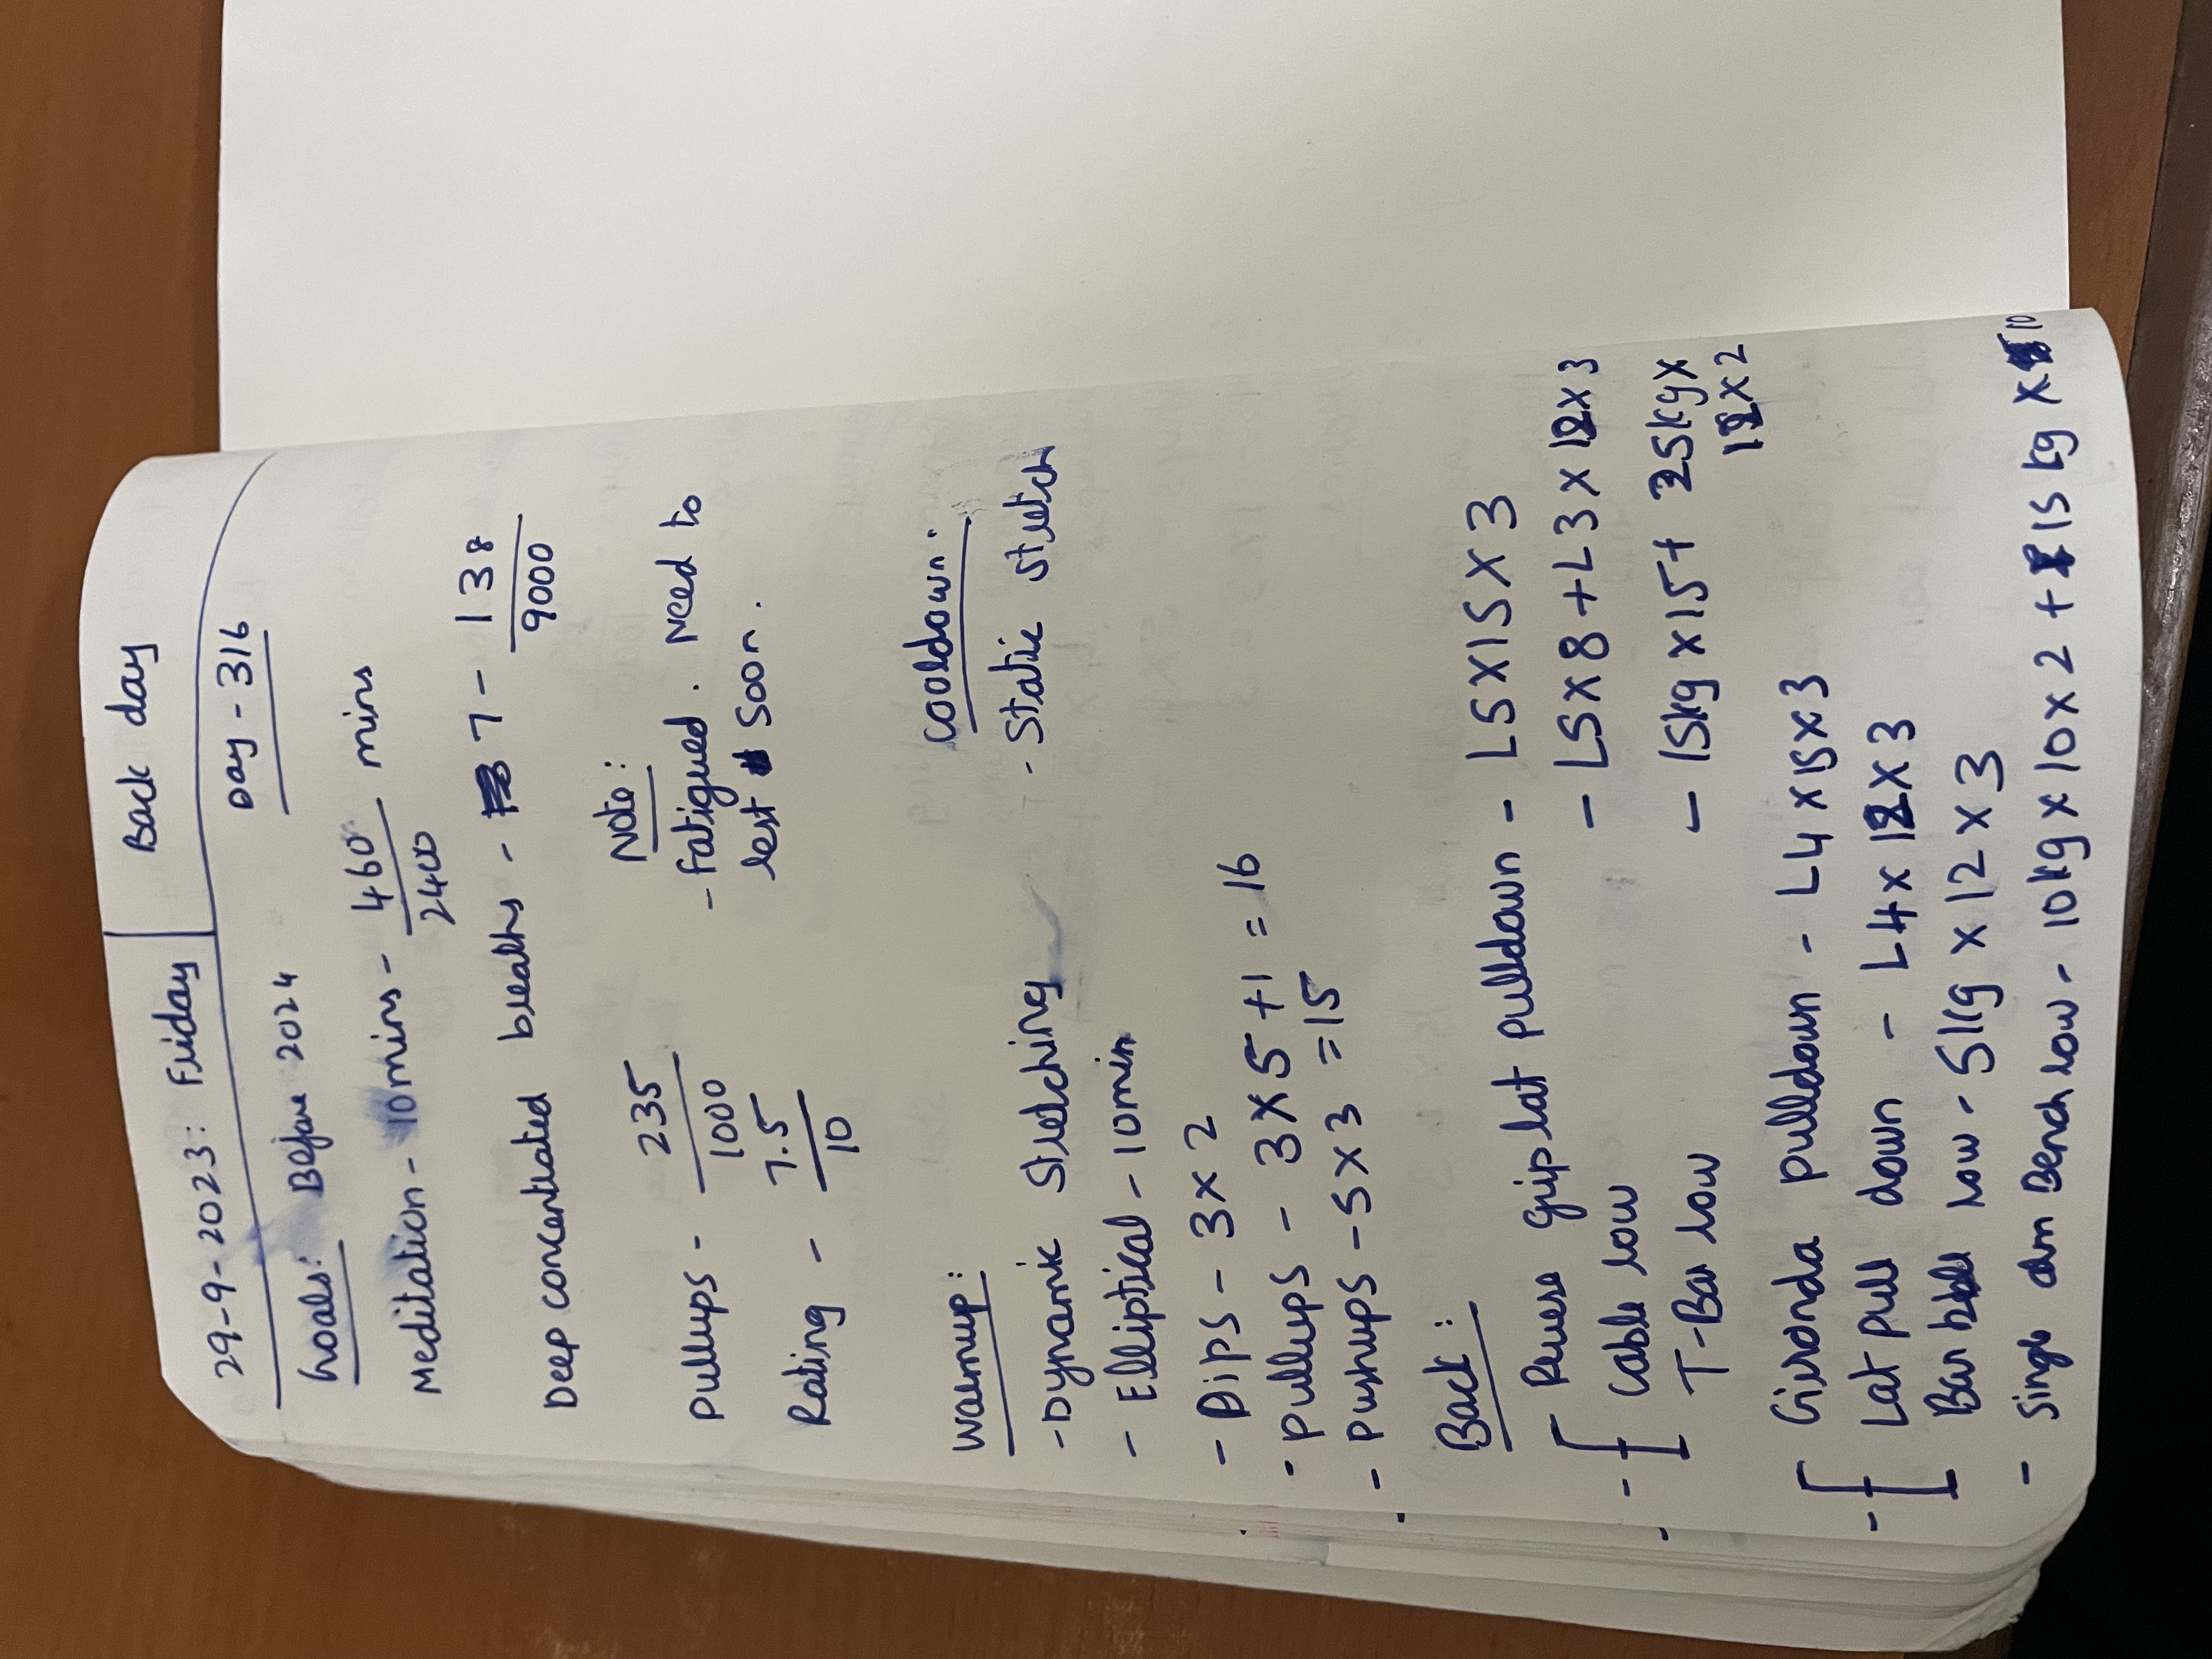 29-9-2023: Friday | Back day
Goals: Before 2024 Day - 316
Meditation - 10mins - 460/2400 mins
Deep concentrated breaths - 7 - 138/9000
Pullups - 235/1000
Rating - 7.5/10
Note:
- Fatigued. Need to
rest soon.
Warmup:
- Dynamic Stretching
- Elliptical - 10min
- Dips - 3x2
- Pullups - 3x5+1 = 16
- Pushups - 5x3 = 15
Cooldown:
- Static stretch
Back:
- Reverse grip lat pulldown - L5x15x3
Cable row - L5x8+L3x12x3
T-Bar row - 15kgx15+ 25kgx
12x2
- Gironda pulldown - L4x15x3
Lat pull down - L4x12x3
Barbell row - 5kg x12x3
- Single arm Bench row - 10kgx10x2+15kgx10